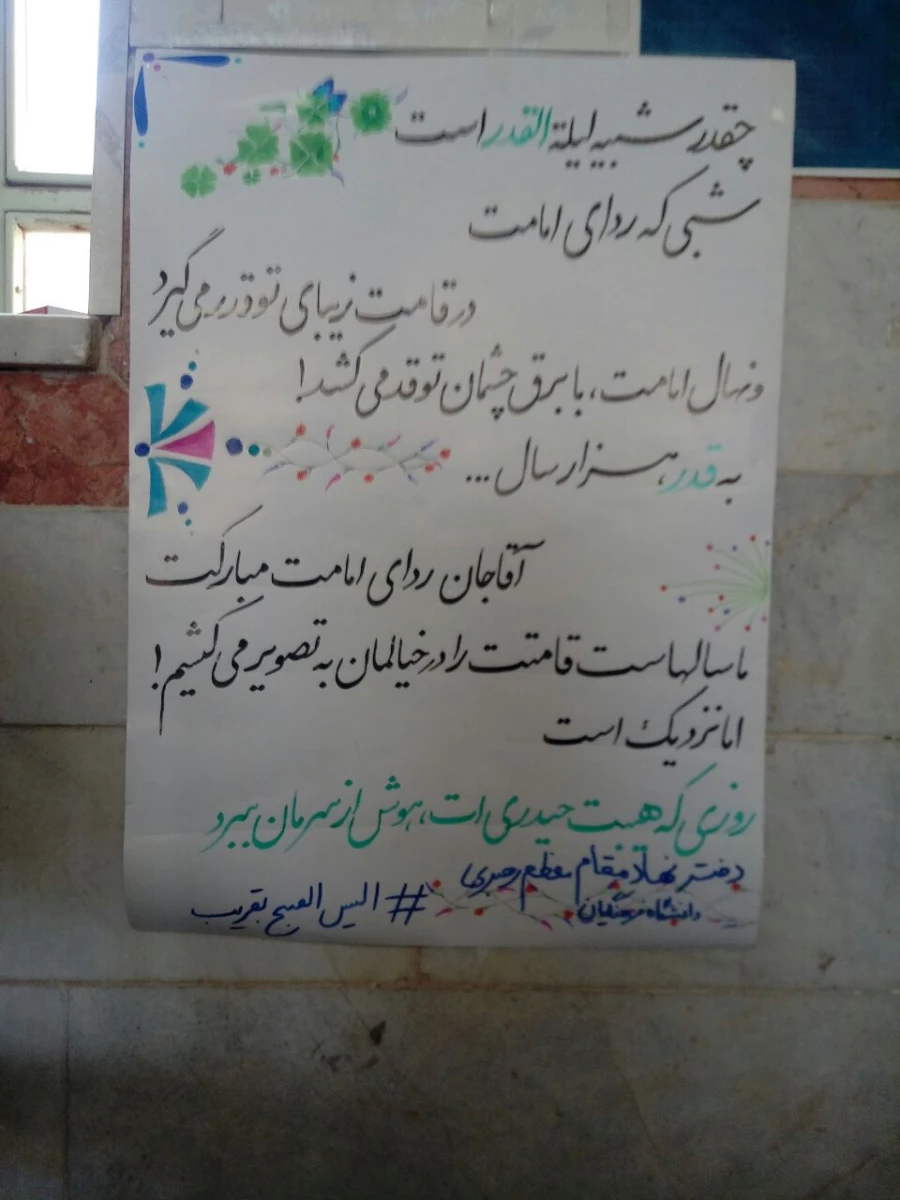 چقدر شبیه لیلة القدر است
شبی که ردای امامت
در قامت زیبای تو قرار می گیرد
و نهال امامت، با برق چشمان تو قد می کشد!
به قدر، هزار سال ...
آقاجان ردای امامت مبارکت
ما سالهاست قامتت را در خیالمان به تصویر می کشیم!
اما نزدیک است
روزی که هیبت حیدری ات، هوش از سرمان ببرد
دفتر نهاد مقام معظم رهبری
دانشگاه فرهنگیان
# الیس الصبح بقریب